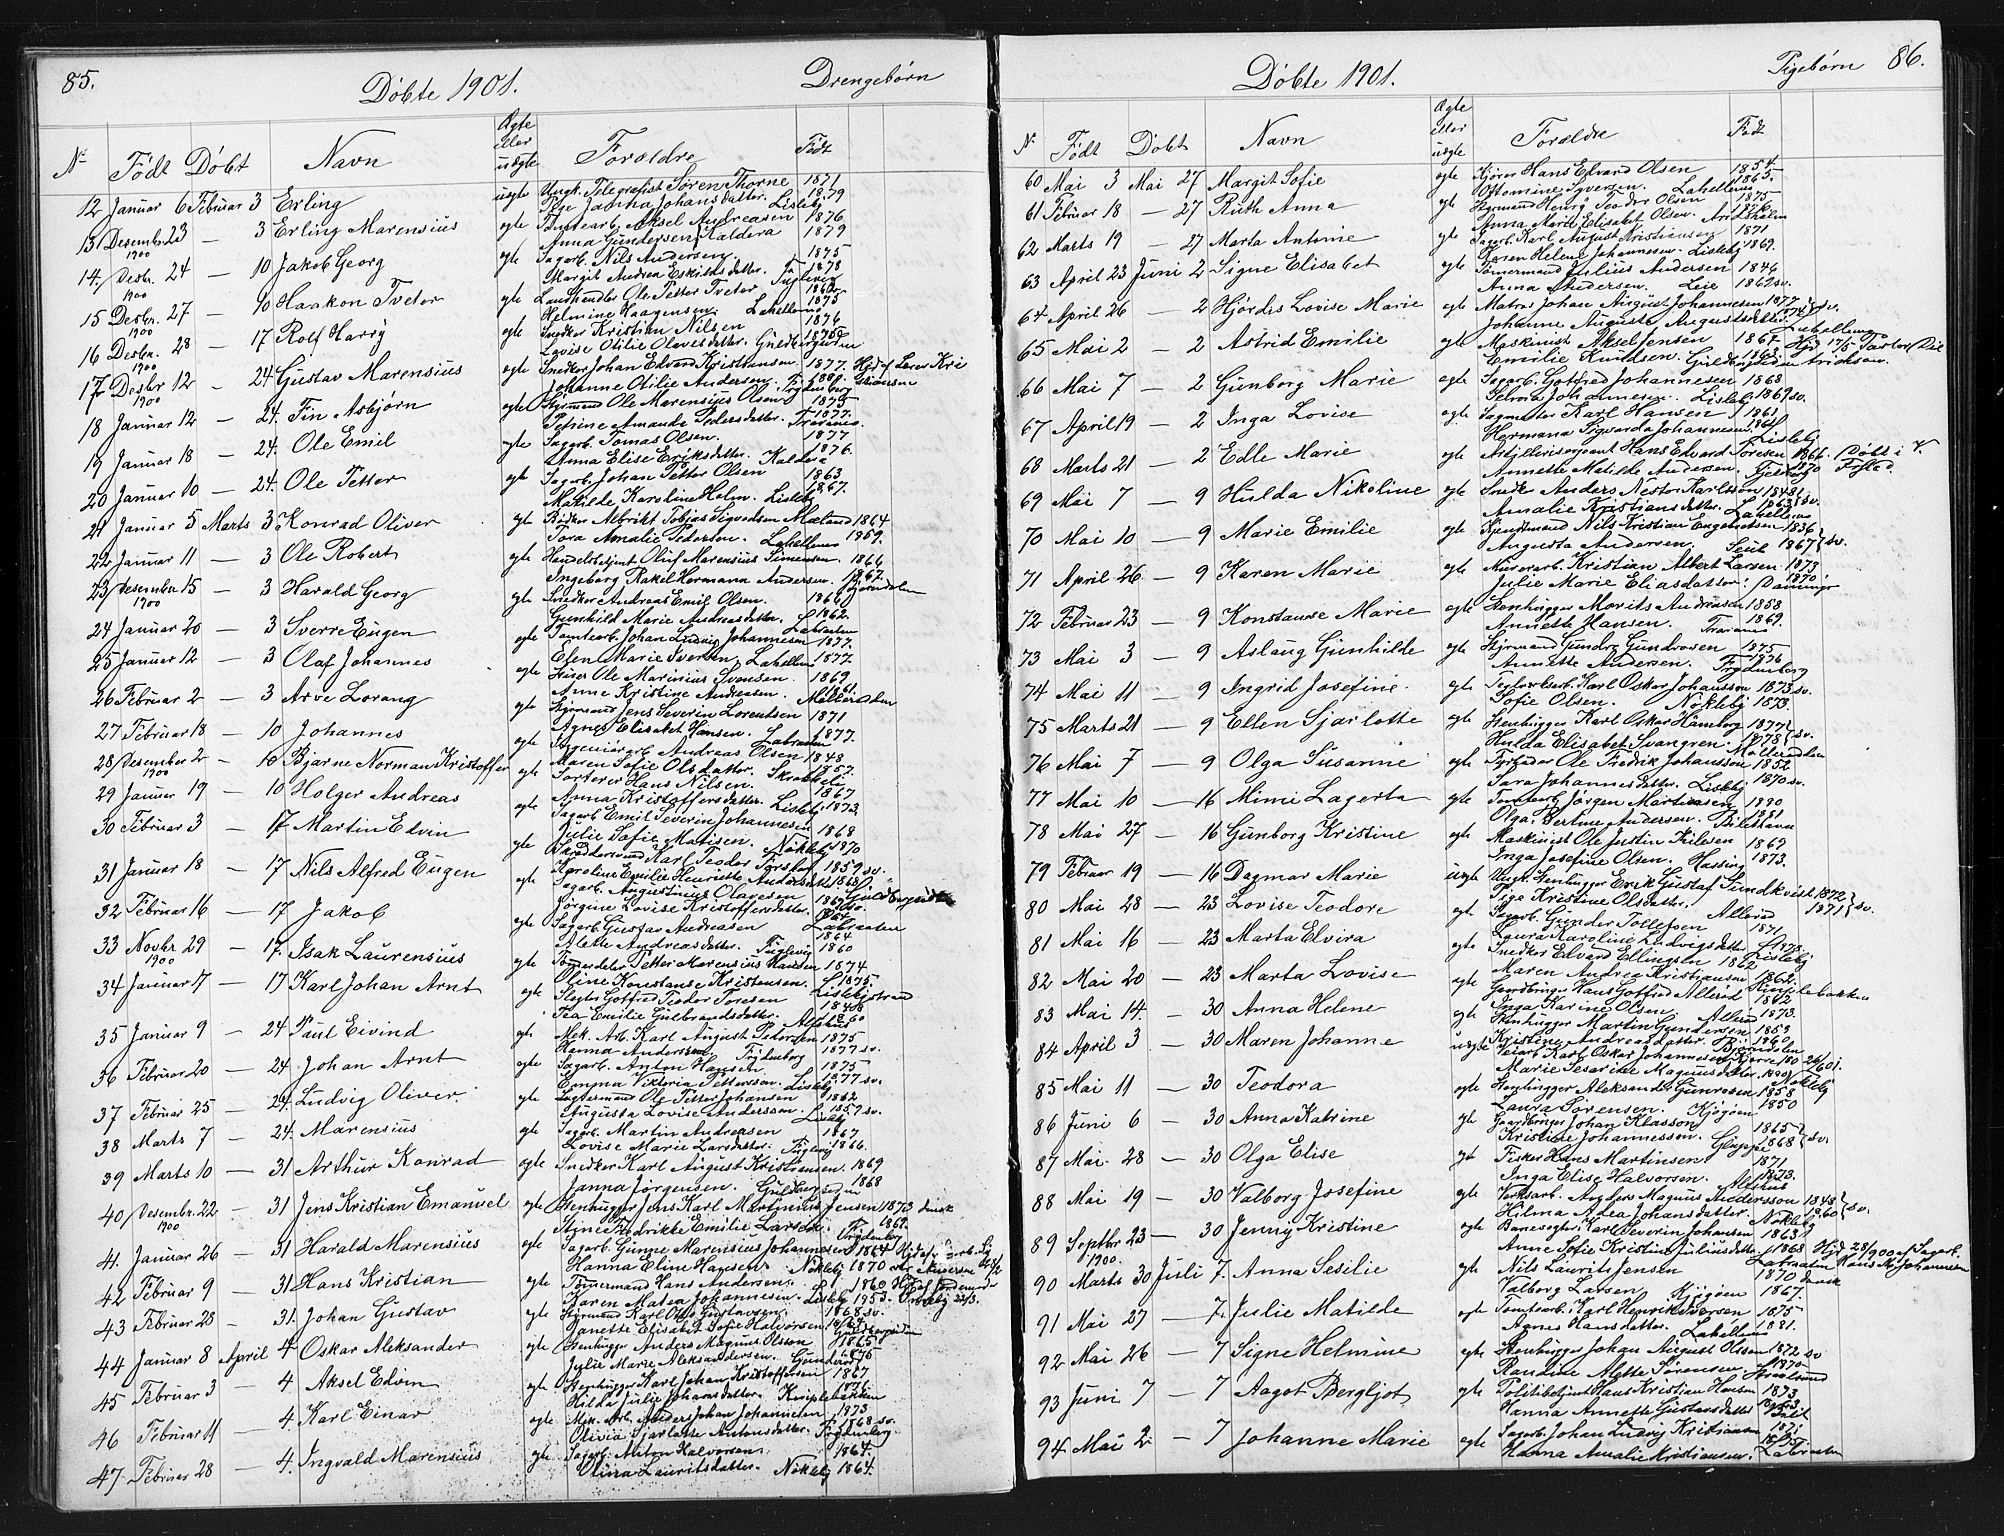 85.
Döbte 1901.
Drengebörn
No Födt Döbt Navn Ægte eller uægte Forældre Födt
12 Januar 6 Februar 3 Erling uegte Ungk. Telegrafist Sören Thorne 1871
Pige Janna Johansdatter. Lisleby 1879
13 Desember 23 1900 — 3 Erling Marensius egte Tomtearb. Aksel Andreasen 1876
Anna Gundersen Kaldera 1879
14 Desbr. 24 1900 — 10 Jakob Georg egte Sagarb. Nils Andersen 1875
Margit Andrea Eskildsdatter. 1878
15 Desbr. 27 1900 — 10 Haakon Tveter egte Landhandler Ole Petter Tveter
Helmine Haagensen. Lahellemo 1875
16 Desbr. 28 1900 — 17 Rolf Harry egte Snedker Kristian Nilsen 1876
Lovise Otilie Olavesdatter.
17 Desbr 12 1900 — 24 Gustav Marensius egte Snedker Johan Edvard Kristiansen 1877.
Johanne Otilie Andersen.
18 Januar 12 — 24. Fin Asbjörn egte Styrmand Ole Marensius Olsen
Petrine Amanda Pedersdatter. Traræmo. 1877.
19 Januar 18 — 24. Ole Emil egte Sagarb. Tomas Olsen. 1877
Anna Elise Eriksdatter. Kaldera 1876.
20 Januar 10 — 24. Ole Petter egte Sagarb. Johan Petter Olsen 1863
Matilde Karoline Holm. Lisleby 1867.
21 Januar 5 Marts 3 Konrad Oliver egte Bödker Albrikt Tobias Sigvedsen Mæland 1864
Tora Amalie Pedersen. Lahellemo 1959.
22 Januar 11 — 3 Ole Robert egte Handelsbetjent Oluf Marensius Simensen. 1866
Ingeborg Rakel Hermana Andersen. 1867.
23 Desember 15 1900 — 3 Harald Georg egte Snedker Andreas Emil Olsen. 1866
Gunhild Marie Andreasdatter. 1862.
24 Januar 20 — 3 Sverre Eugen egte Tomtearb. Johan Ludvig Johannesen 1877.
Elen Marie Iversen. Lahellemo 1877.
25 Januar 12 — 3 Olaf Johannes egte Ole Marinius Svensen. 1869
Anne Kristine Andreasen.
26 Februar 2 — 3 Arve Lorang egte Styrmand Jens Severin Lorentsen 1871
Agnes Elisabet Hansen. Labraaten 1877.
27 Februar 18 — 10 Johannes egte Andreas Olsen 1848
Maren Sofie Olsdatter. 1857.
28 Desember 2 1900 — 10 Bjarne Norman Kristoffer egte Sorterer Hans Nilsen. 1867
Anna Kristoffersdatter. Lisleby 1873.
29 Januar 19 — 10 Holger Andreas egte Sagarb Emil Severin Johannesen 1868
Julie Sofie Matisen. Nökleby 1870
30 Februar 3 — 17 Martin Edvin egte Skræddersvend Karl Teodor 1859 sv.
Karoline Emilie Henriette Andersdatter 1868
31 Januar 18 — 17 Nils Alfred Eugen egte Sagarb. Augustinus Olavesen
Jörgine Lovise Kristoffersdatter.
32 Februar 16 — 17 Jakob egte Sagarb. Gustav Andreasen 1864
Alette Andreasdatter. 1860
33 Novbr. 29 1900 — 17. Isak Laurensius egte Petter Marensius Hansen 1874
Oline Konstanse Kristensen. 1875.
34 Januar 17 — 17 Karl Johan Arnt egte Slagter Gotfred Teodor Toresen
Tea Emilie Gulbrandsdatter.
35 Januar 9 — 24 Paul Eivind egte Mek. Arb. Karl August Petersen 1875
Hanna Andersson. Trydenborg 1877 sv.
36 Februar 20 — 24. Johan Arnt egte Sagarb. Anton Hansen 1875
Emma Viktoria Pettersson. Lisleby 1877 sv.
37 Februar 25 — 24. Ludvig Oliver egte Lugtermand Ole Petter Johansen 1862
Augusta Lovise Andersson. Lisleby 1857 sv.
38 Marts 7 — 24. Marensius egte Sagarb. Martin Andreasen 1867
Lovise Marie Larsdatter. 1866.
39 Marts 10 — 31 Arthur Konrad egte Snedker Karl August Kristiansen. 1869
Janna Jörgensen. 1868
40 Desembr. 22 1900 — 31 Jens Kristian Emanuel egte Stenhugger Jens Karl Martinius Jensen 1873 dansk
Signe Fredrikke Emilie Larsen.
41. Januar 26 — 31 Harald Marensius egte Sagarb. Gunne Marensius Johannesen 1864
Hanna Eline Hansen. Nökleby 1870
42 Februar 9 — 31 Hans Kristian egte Tömermand Hans Andersen. 1860
Karen Matea Johannesen. Lisleby 1953.
43 Februar 28 — 31. Johan Gustav egte Styrmand Karl Otto Gustavsen. 1868 sv.
Janette Elisabet Sofie Halvorsen
44 Januar 8 April 4 Oskar Aleksander egte Stenhugger Anders Magnus Olsson 1865
Julie Marie Aleksandersen. 1875
45 Februar 3 — 4 Aksel Edvin egte Stenhugger Karl Johan Kristoffersen 1867
Hilda Julie Johansdatter.
46 Februar 11 — 4. Karl Einar egte Mek. Arb. Anders Johan Johannesen 1873
Olivia Sjarlotte Antonsdatter. 1868 sv.
47 Februar 28 — 4. Ingvald Marensius egte Sagarb. Anton Halvorsen. 1864.
Olina Lauritsdatter. Nökleby 1864.
Döbte 1901.
Pigebörn
86.
N. Födt Döbt Navn Ægte eller uægte Forældre Födt
60 Mai 3 Mai 27 Margit Sofie egte Kjörer Hans Edvard Olsen 1854.
Ottomine Syversen. Lahellemo 1865.
61 Februar 18 — 27 Ruth Anna egte Styrmand Henry Teodor Olsen 1875
Anna Marie Elisabet Olsen. 1876
62 Marts 19 — 27 Marta Antonie egte Sagarb. Karl August Kristiansen 1871
Karen Helene Johannesen. Lisleby 1869.
63 April 23 Juni 2 Signe Elisabet egte Tömermand Julius Andersen 1846
Anna Andersen. Leie 1862 sv.
64 April 26 — 2 Hjördis Lovise Marie egte Matros Johan August Johannesen 1877
Johanne Augusta Augustsdatter.
65 Mai 2 2 Astrid Emilie egte Maskinist Aksel Jensen 1867.
Emilie Knudsen.
66 Mai 7 — 2 Gunborg Marie egte Sagarb. Gotfred Johannesen 1868
Johannesen. Lisleby 1869 sv.
67 April 19 — 2 Inga Lovise egte Sagmester Karl Hansen 1861.
Hermana Sigvarda Johannesen. 1864
68 Marts 21 — 2 Edle Marie egte Artillerisergeant Hans Edvard Sörensen 1864. Döbt i V. Fr.stad.
Annette Matilde Andersen. 1870
69 Mai 7 — 9 Hulda Nikoline egte Snedker Anders Nestor Karlsson 1848 sv.
Amalie Kristiansdatter. Lahellemo 1863
70 Mai 10 — 9 Marie Emilie egte Nils Kristian Engebretsen 1836
Augusta Andersen. 1867 sv.
71 April 26 — 9 Karen Marie egte Murerarb. Kristian Albert Larsen 1873
Julie Marie Eliasdatter. 1870
72 Februar 23 — 9 Konstanse Marie egte Stenhugger Morits Andreasen 1858
Annette Hansen. 1869.
73 Mai 3 — 9 Aslaug Gunhilde egte Styrmand Gundro Gundrosen 1875
Annette Andersen. 1876
74 Mai 11 — 9 Ingrid Josefine. egte Karl Oskar Johansson 1873 sv.
Sofie Olsen. Nökleby 1873.
75 Marts 21 — 9 Ellen Sjarlotte egte Stenhugger Karl Oskar Hamborg 1877 sv.
Hulda Elisabet Svangren. 1878
76 Mai 7 — 9 Olga Susanne egte Fyrböder Ole Fredrik Johansson 1852
Sara Johannesdatter. Lisleby 1870 sv.
77 Mai 10 — 16 Mimi Lagerta egte Tomtearb. Jörgen Martinsen 1880
Olga Bertine Andersen. 1881
78 Mai 27 — 16 Gunborg Kristine egte Maskinist Ole Justin Nilsen 1869
Inga Josefine Olsen. Hassing 1873.
79 Februar 19 — 16 Dagmar Marie uegte Ungk. Stenhugger Erik Gustaf Sundkvist 1872
Pige Kristine Olsdatter. 1871 sv.
80 Mai 28 — 23 Lovise Teodore egte Sagarb. Gunder Tollefsen 1871
Laura Karoline Ludvigsdatt
81 Mai 16 — 23 Marta Elvira egte Snedker Edvard Ellingsen 1862
Maren Andrea Kristiansen 1862.
82 Mai 20 — 23 Marta Lovise egte Gaardbruger Hans Gotfred Alleröd 1862
Inga Karine Olsen. Alleröd 1873.
83 Mai 14. — 30 Anna Helene egte Stenhugger Martin Gundersen 1853
Kristine Andreasdatter. 1860
84 April 3 — 30 Maren Johanne uegte Veiarb Karl Oskar Johannesen
Marie Magnusdatter.
85 Mai 11 — 30 Teodora egte Stenhugger Aleksander Gunrosen 1858
Laura Sörensen. Kjögöen 1850
86 Juni 6 — 30 Anna Katrine egte Gaardbruger Johan Klasson 1865
Kristine Johannessen. 1868 sv.
87 Mai 28 — 30 Olga Elise egte Fisker Hans Martinsen 1871
Inga Elise Halvorsen. 1873.
88 Mai 19 — 30 Valborg Josefine egte Verksarb. Anders Magnus Andersson 1848 sv.
Hilma Adea Johansdatter. Nökleby 1860
89 Septbr 23 1900. — 30 Jenny Kristine egte Banevogter Karl Severin Johansen 1863
Anne Sofie Kristine Juliusdatter 1868
90 Marts 30 Juli 7. Anna Sesilie egte Nils Laurits Jensen 1870 dansk
Valborg Larsen Kjögöen 1867.
91 Mai 27 — 7. Julie Matilde egte Tomtearb. Karl Henrik Iversen 1875
Agnes Hansdatter. Lahellemo 1881.
92 Mai 26 — 7 Signe Helmine egte Stenhugger Johan August Olsson 1872 sv
Randine Alette Sörensen 1870
93 Juni 7 — 7 Aagot Bergljot egte Politibetjent Hans Kristian Hansen 1873
Hanna Annette Gustavsdatter
94 Mai 2 — 7 Johanne Marie egte Sagarb. Johan Ludvig Kristiansen
Hanna Amalie Kristiansen. Labraaten